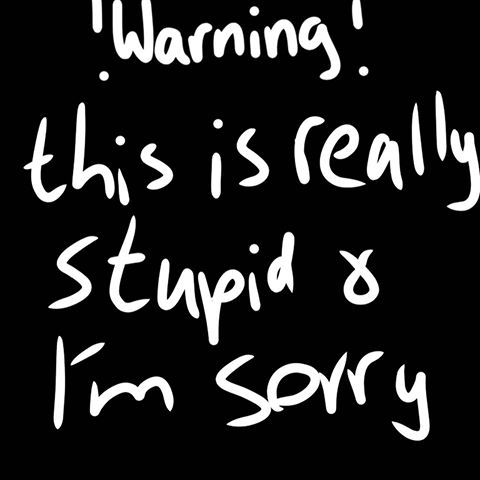 !Warning!
this is really
stupid &
I'm sorry